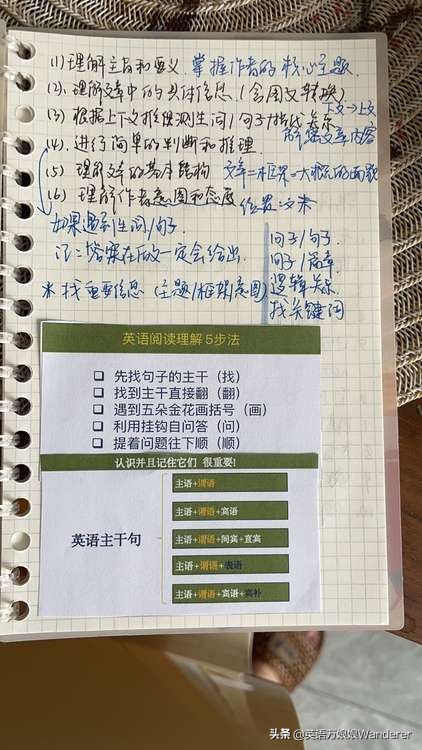 (1)理解主旨和要义. 掌握作者的核心主题.
(2). 理解文章中的具体信息. (含同义转换)
(3) 根据上下文推测生词/句子/指代关系 下文→上文
(4). 进行简单的判断和推理. 解释文章内容
(5) 理解文章的基本结构 文章=框架→大概的面貌
(6) 理解作者意图和态度 位置:文末
如果遇到生词/句子.
注:答案在后文一定会给出.
词子/句子.
句子/篇章.
※ 找重要信息 (主题/框架/意图) 逻辑关系
找关键词
英语阅读理解5步法
□ 先找句子的主干（找）
□ 找到主干直接翻（翻）
□ 遇到五朵金花画括号（画）
□ 利用挂钩自问答（问）
□ 提着问题往下顺（顺）
认识并且记住它们 很重要!
英语主干句
主语+谓语
主语+谓语+宾语
主语+谓语+间宾+直宾
主语+谓语+表语
主语+谓语+宾语+宾补
头条 @英语万娘娘Wanderer